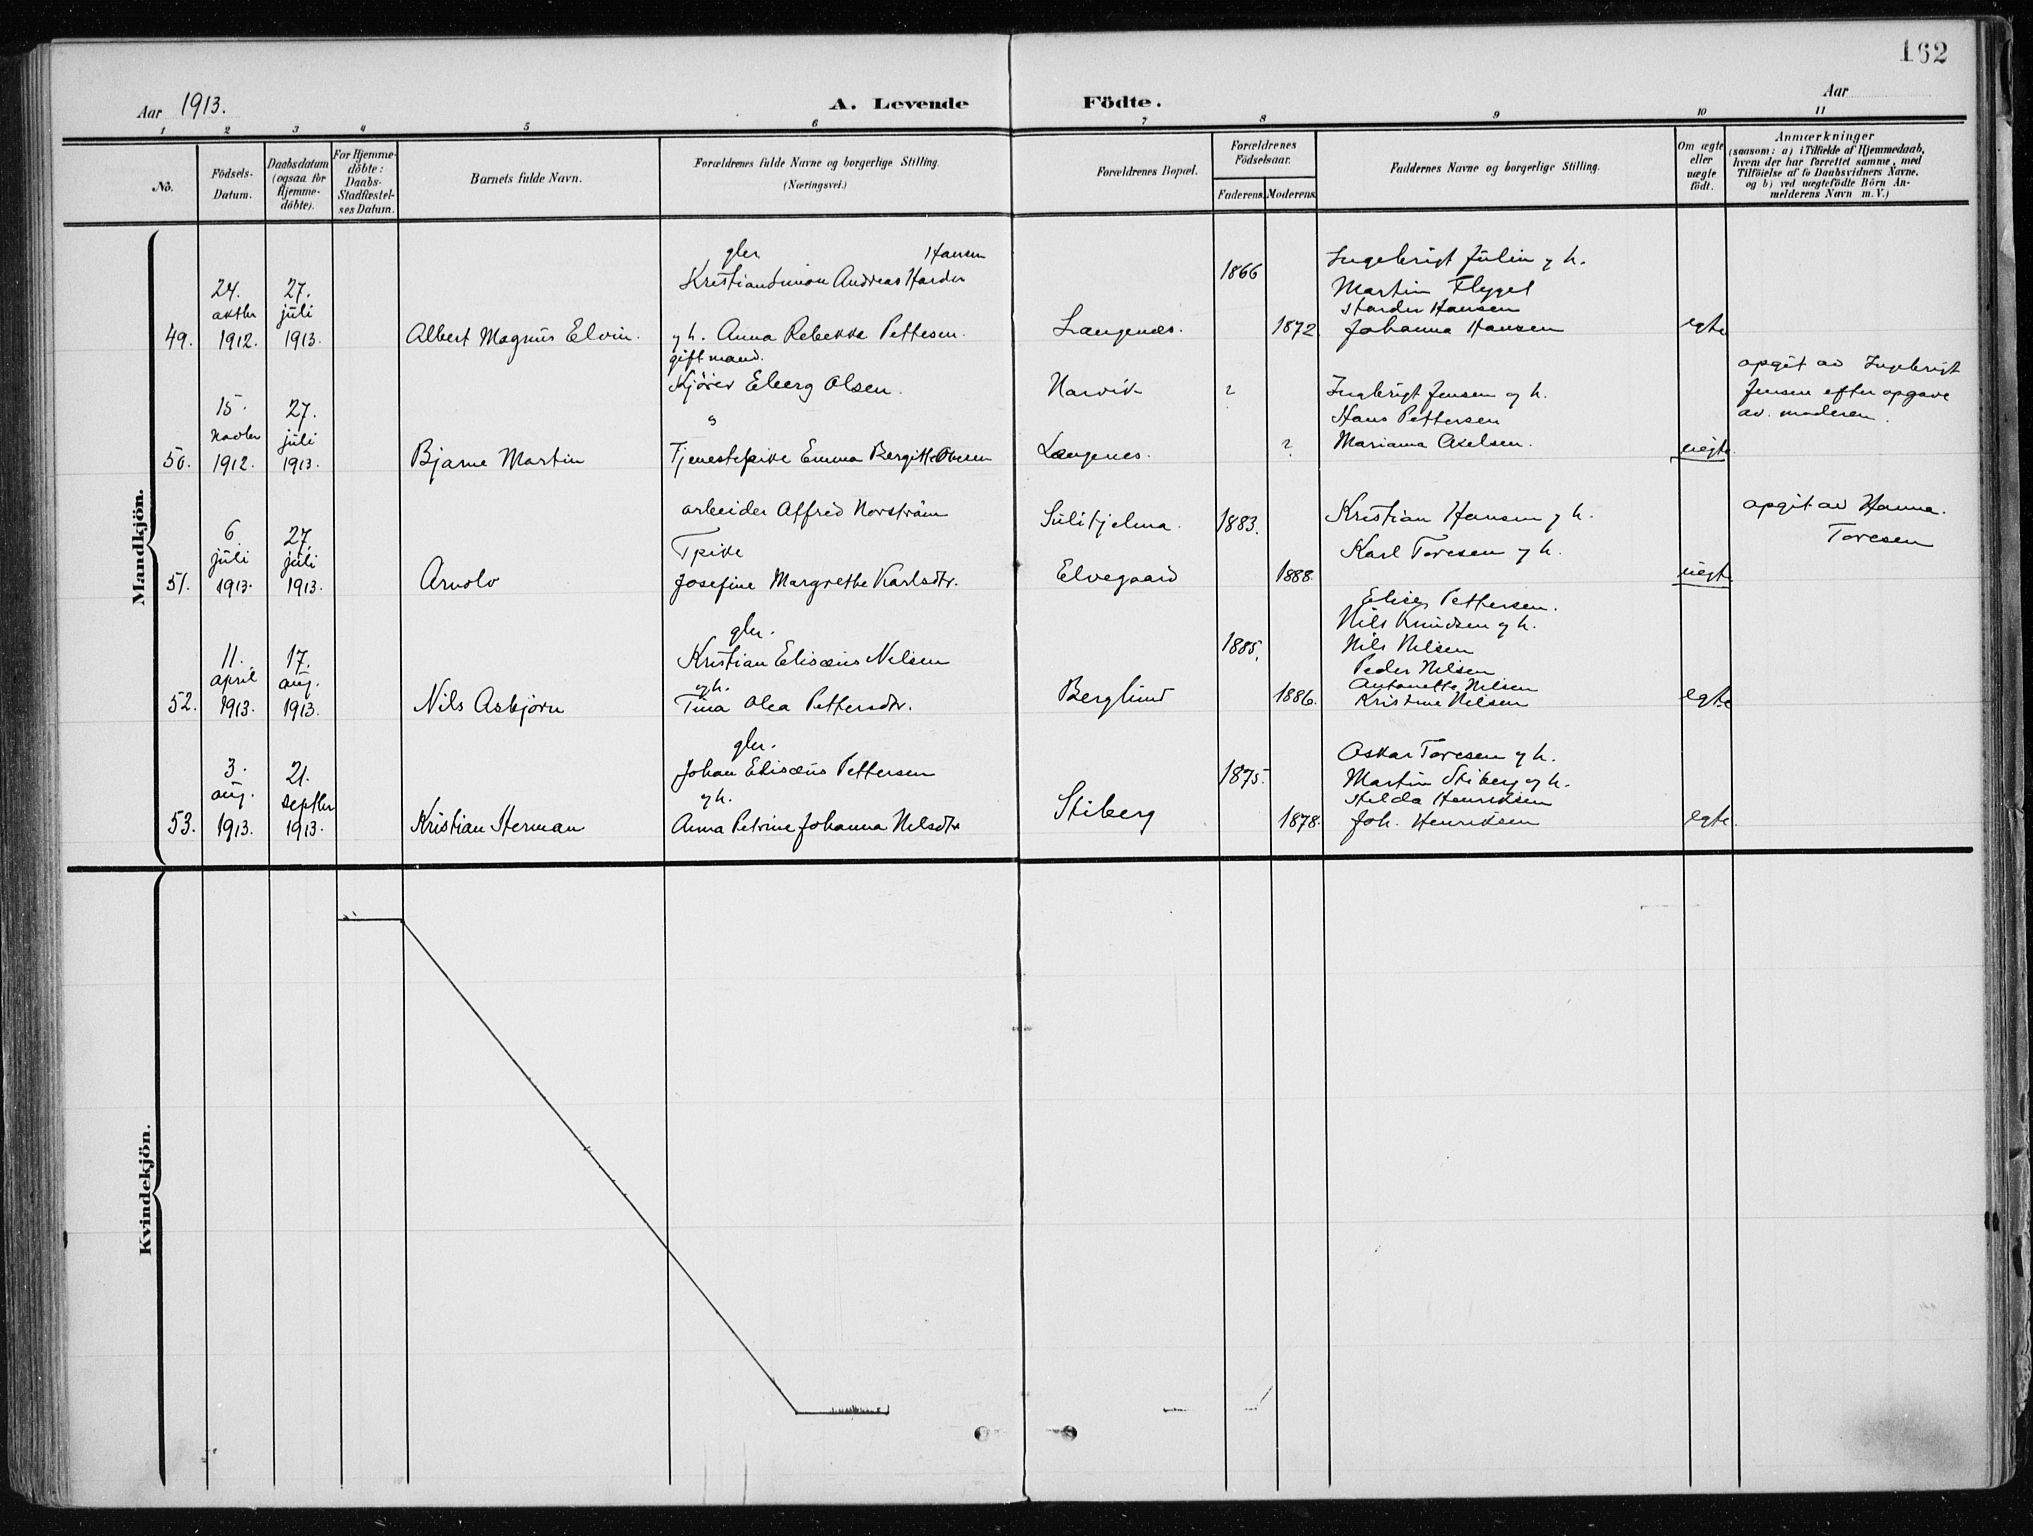 162
Aar 1913.
A. Levende Födte.
Aar
1 2 3 4 5 6 7 8 9 10 11
No.
Födsels-
Datum.
Daabsdatum
(ogsaa for
Hjemme-
döbte).
For Hjemme-
döbte:
Daabs-
Stadfæstel-
ses Datum.
Barnets fulde Navn.
Forældrenes fulde Navne og borgerlige Stilling.
(Næringsvei.)
Forældrenes Bopæl.
Forældrenes
Födselsaar.
Faderens. Moderens.
Faddernes Navne og borgerlige Stilling.
Om ægte
eller
uægte
födt.
Anmærkninger
(saasom: a) i Tilfælde af Hjemmedaab,
hvem der har forrettet samme, med
Tilföielse af to Daabsvidners Navne,
og b) ved uægtefödte Börn An-
melderens Navn m. V.)
Mandkjön.
49.
24.
oktbr
1912.
27.
juli
1913.
Albert Magnus Elvin.
gbr Hansen
Kristian Simon Andreas Harder
og h. Anna Rebekka Pettesen.
Langenæs.
1866
1872
Ingebrigt Julin og h.
Martin Flygel
Harder Hansen
Johanna Hansen
egte
50.
15.
novbr
1912.
27.
juli
1913.
Bjarne Martin
gift mand.
Kjører Eberg Olsen.
Tjenestepike Emma Bergitte
Narvik
Langenes.
?
?
Ingebrigt Jensen og h.
Hans Pettersen
Marianna Axelsen.
uegte.
opgit av Ingebrigt
Jensen efter opgave
av moderen.
51.
6.
juli
1913.
27.
juli
1913.
Arnolv
arbeider Alfred Norstrøm
T pike
Josefine Margrethe Karlsdtr.
Sulitjelma.
Elvegaard
1883.
1888.
Kristian Hansen og h.
Karl Toresen og h.
uegte
opgit av Hanna
Toresen
52.
11.
april
1913.
17.
aug.
1913.
Nils Asbjørn
gbr.
Kristian Elisæus Nilsen
og h.
Tina Olea Pettersdtr.
Berglund
1885.
1886.
Elise Pettersen.
Nils Knudsen og h.
Nils Nilsen
Peder Nilsen
Antonette Nilsen
Kristine Nilsen
egte
53.
3.
aug.
1913.
21.
septbr
1913.
Kristian Herman
gbr.
Johan Elisæus Pettersen
og h.
Anna Petrine Johanna Nilsdtr
Stiberg
1875.
1878.
Oskar Toresen og h.
Martin Stiberg og h.
Hilda Henriksen
Joh. Henriksen
egte.
Kvindekjön.